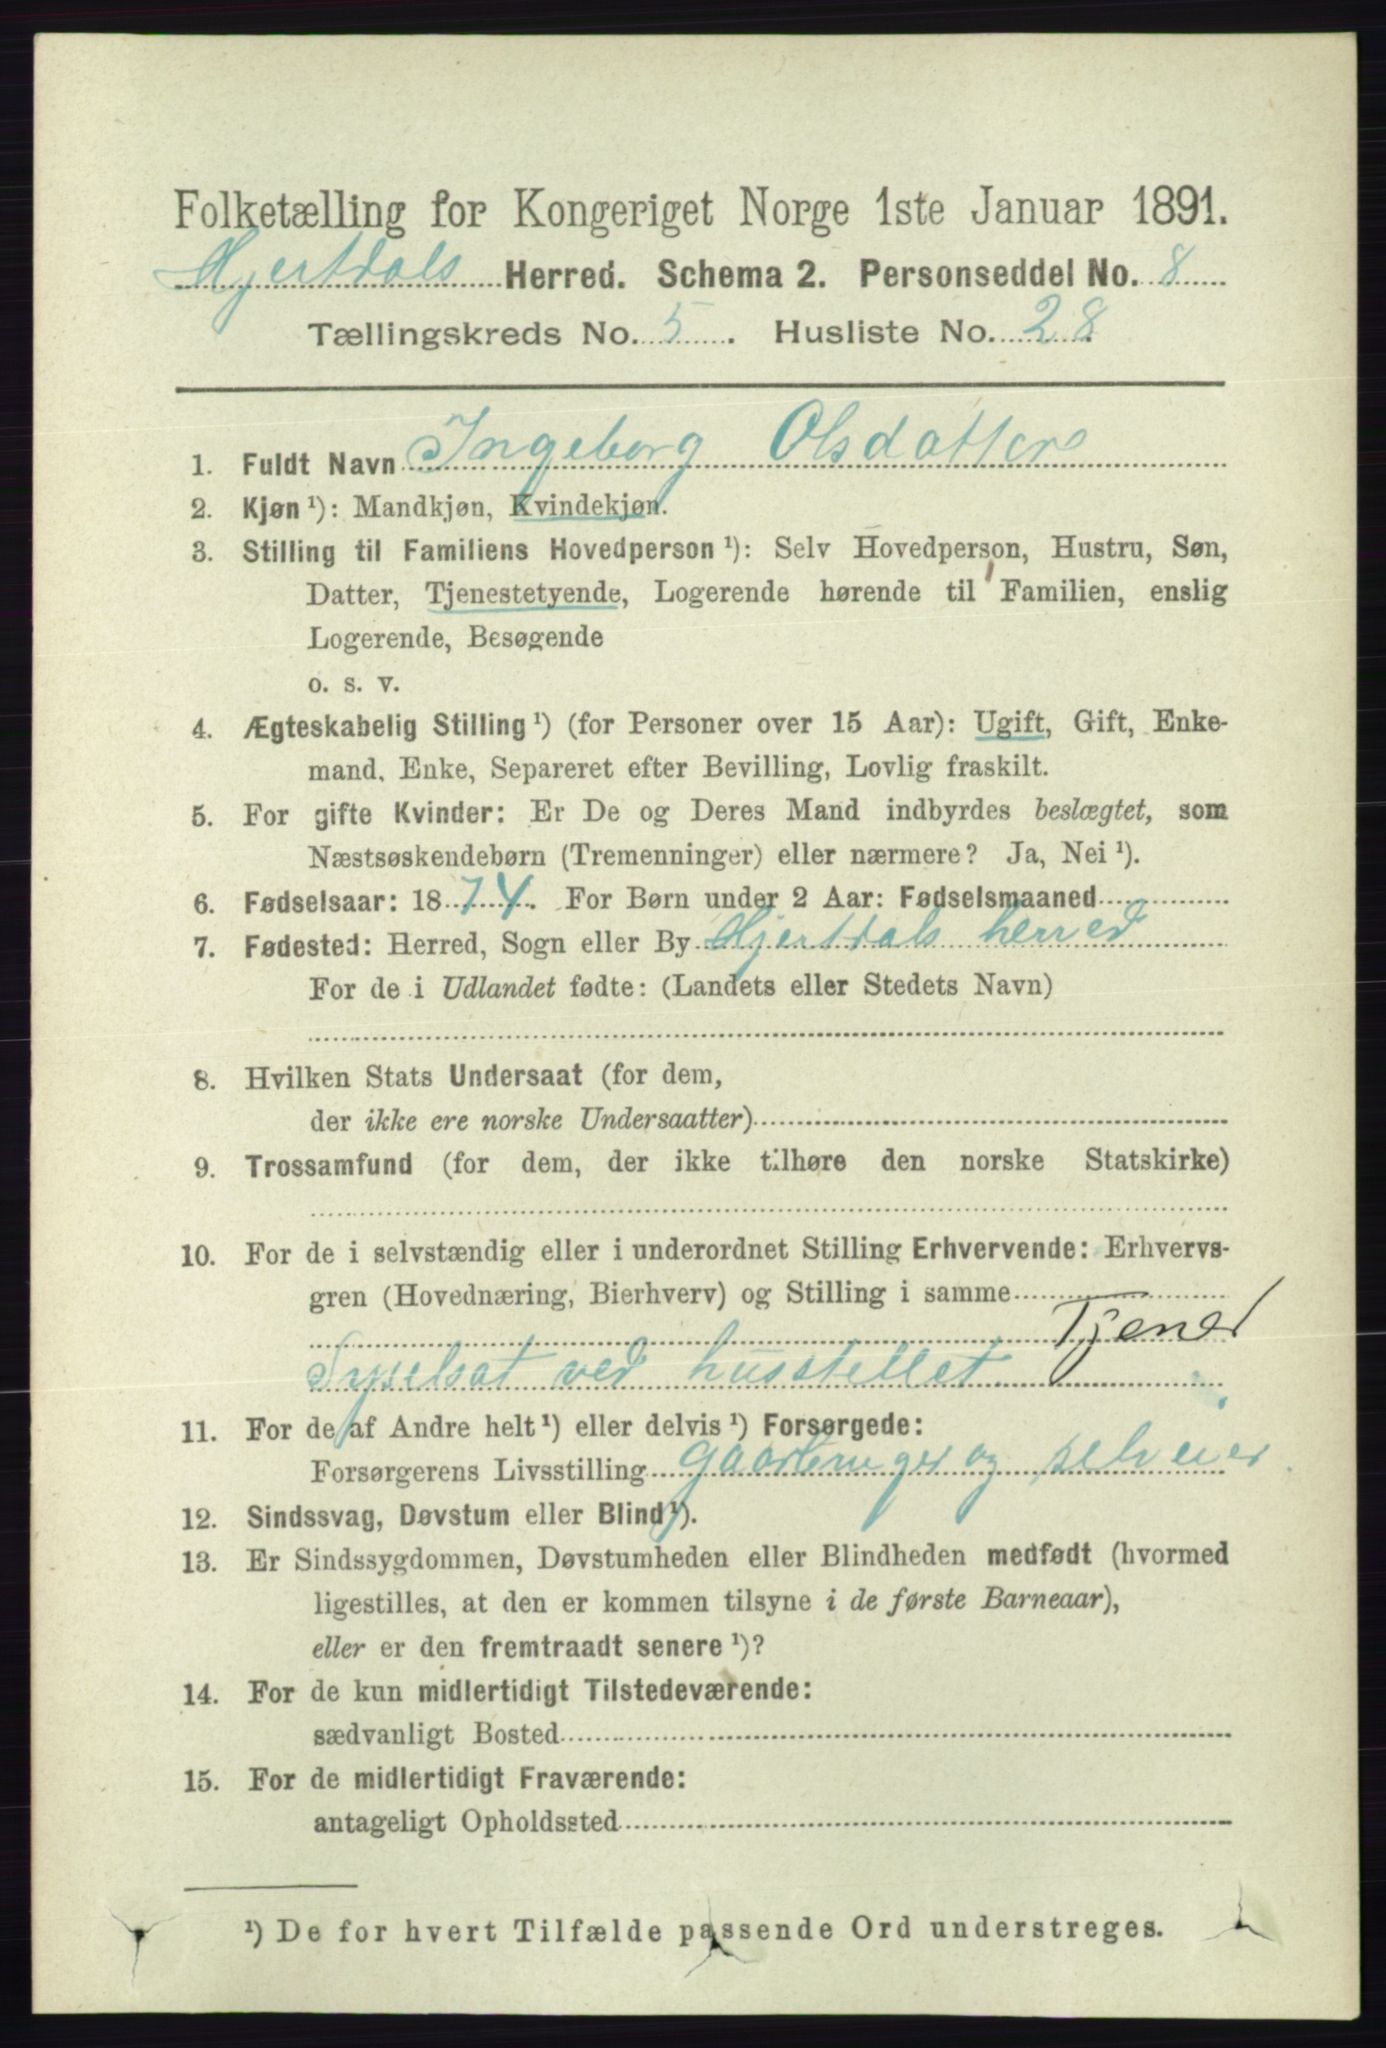 Folketælling for Kongeriget Norge 1ste Januar 1891.
Hjertdals Herred. Schema 2. Personseddel No. 8
Tællingskreds No. 5. Husliste No. 28
1. Fuldt Navn Ingeborg Olsdatter
2. Kjøn ¹): Mandkjøn, Kvindekjøn.
3. Stilling til Familiens Hovedperson ¹): Selv Hovedperson, Hustru, Søn,
Datter, Tjenestetyende, Logerende hørende til Familien, enslig
Logerende, Besøgende
o. s. v.
4. Ægteskabelig Stilling ¹) (for Personer over 15 Aar): Ugift, Gift, Enke-
mand, Enke, Separeret efter Bevilling, Lovlig fraskilt.
5. For gifte Kvinder: Er De og Deres Mand indbyrdes beslægtet, som
Næstsøskendebørn (Tremenninger) eller nærmere? Ja, Nei ¹).
6. Fødselsaar: 1874. For Børn under 2 Aar: Fødselsmaaned
7. Fødested: Herred, Sogn eller By Hjertdals herred
For de i Udlandet fødte: (Landets eller Stedets Navn)
8. Hvilken Stats Undersaat (for dem,
der ikke ere norske Undersaatter)
9. Trossamfund (for dem, der ikke tilhøre den norske Statskirke)
10. For de i selvstændig eller i underordnet Stilling Erhvervende: Erhvervs-
gren (Hovednæring, Bierhverv) og Stilling i samme
Tjener
Syselsat ved husstellet
11. For de af Andre helt ¹) eller delvis ¹) Forsørgede:
Forsørgerens Livsstilling gaarbruger og selveier
12. Sindssvag, Døvstum eller Blind ¹).
13. Er Sindssygdommen, Døvstumheden eller Blindheden medfødt (hvormed
ligestilles, at den er kommen tilsyne i de første Barneaar),
eller er den fremtraadt senere ¹)?
14. For de kun midlertidigt Tilstedeværende:
sædvanligt Bosted
15. For de midlertidigt Fraværende:
antageligt Opholdssted
¹) De for hvert Tilfælde passende Ord understreges.